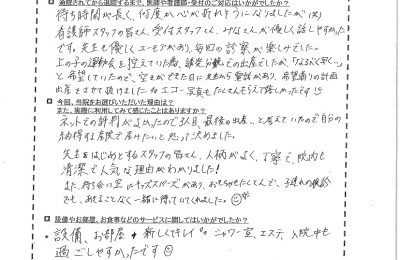 施設されてから退院するまで、医師や看護師・受付のご対応はいかがでしたか？
待ち時間が長く、何度か心が折れそうになりましたが(笑)
看護師スタッフの皆さん、受付スタッフさん、みなさんが優しく話しやすかった
です。先生も優しくユーモアがあり、毎回の診察が楽しみでした。
上の子の運動会を控えていた為、誘発分娩での出産でしたが、「なるべく早く…」
と希望していたので、空きができた日に先生から電話があり、希望通りの計画
出産をさせて頂けました。エコー写真もたくさんもらえて嬉しかったです
今回、当院をお選びいただいた理由は？
また、実際に利用してみて感じたことはありますか？
ネットでの評判がよかったので 3人目、最後の出産、と考えていたので自分の
納得する産院で産みたい。と思って決めました。
先生をはじめとするスタッフの皆さん、人柄がよく、丁寧で、院内も
清潔で人気な理由がわかりました!
また、待ち合い室にはキッズスペースがあり、おもちゃもたくさんで、子連れの検診
でも、あきることなく一緒に待っていてくれました。
設備やお部屋、お食事などのサービスに関してはいかがでしたか？
設備、お部屋 新しくキレイ シャワー室、エステ、入院中も
過ごしやすかったです